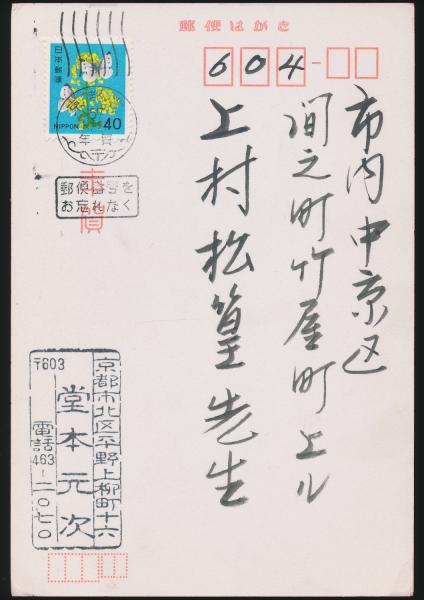 郵便はがき
604
市内中京区
間之町竹屋町上ル
上村松篁先生
日本郵便
NIPPON
40
年賀
郵便番号を
お忘れなく
京都市北区平野上柳町十六
堂本元次
〒603
電話463-二〇七〇